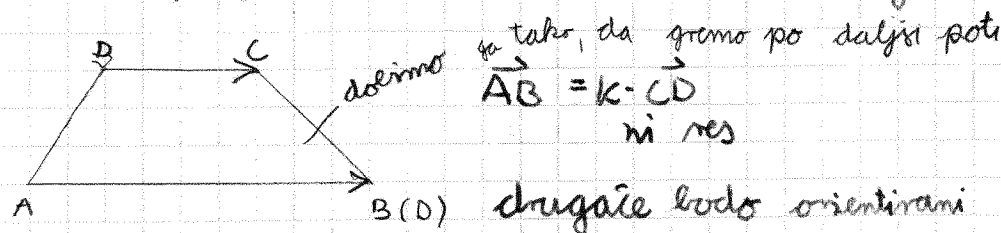 dobimo ga tako, da gremo po daljši poti
D C
AB = k · CD
ni res
A B(D) drugače bodo orientirani